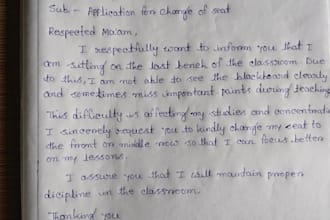 Sub:- Application for change of seat
Respected Ma'am,
I respectfully want to inform you that I
am sitting on the last bench of the classroom Due
to this, I am not able to see the blackboard clearly
and sometimes miss important points during teaching
This difficulty is affecting my studies and concentration
I sincerely request you to kindly change my seat to
the front or middle row so that I can focus better
on my lessons.
I assure you that I will maintain proper
dicipline in the classroom.
Thanking you